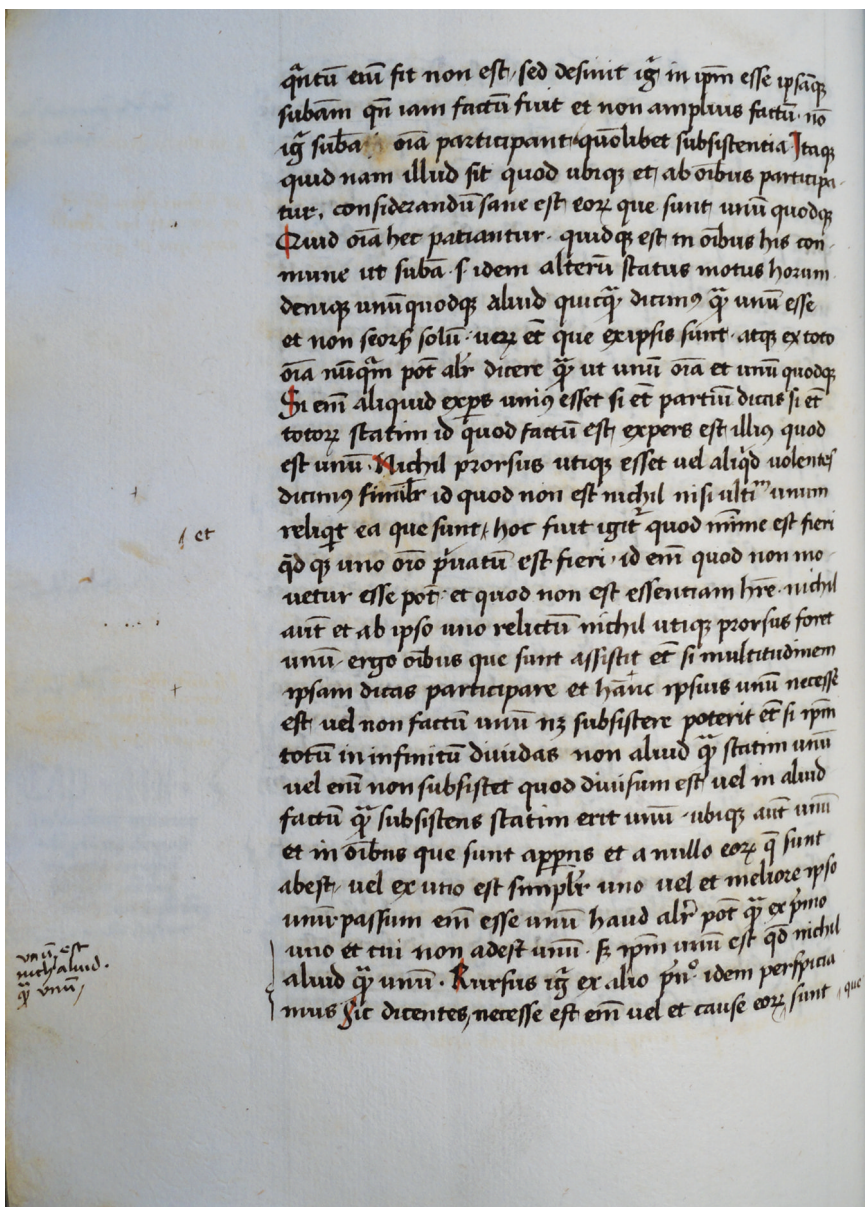 qñtū eni᷄ fit non est, sed desinit igr̄ in ipm̄ esse ipsāqꝫ
subam̄ qn̄ iam factū fuit et non amplius factū · nō
igr̄ suba oīa participant quōlibet subsistentia Itaqꝫ
quid nam illud sit quod ubiqꝫ et ab oībus participa
tur, considerandū sane est eorꝝ que sunt unū quodqꝫ
Quid oīa hec patiantur · quidqꝫ est in oībus his con
mune ut subā · s· idem alterū status motus horum
deniqꝫ unūquodqꝫ aliud quicq̄ꝫ dicimꝰ q̄ꝫ unū esse
et non seors̄ solū · uerꝝ et̄ que ex ipsis sunt · atqꝫ ex toto
oīa nūqm̄ pot̄ alr̄ dicere q̄ꝫ ut unū oīa et unū quodqꝫ
Si em̄ aliquid expers uniꝰ esset si et̄ partiū dicas si et̄
totorꝝ statim id quod factū est expers est illiꝰ quod
est unū · Nichil prorsus utique esset uel aliqͥd uolentes
dicimꝰ simil̄r id quod non est nichil nisi ulti᷄ᵐ unum
reliqͥt ea que sunt, hoc fuit igit̄ quod mi᷄me est fieri
qd̄ qꝫ uno oīo pͥuatū est fieri · id em̄ quod non mo
uetur esse pot̄ · et quod non est essentiam hr̄e · nichil
aut̄ et ab ipso uno relictū nichil utiqꝫ prorsus foret
unū · ergo oībus que sunt assistit et̄ si multitudinem
ipsam dicas participare et hanc ipsius unū necesse
est uel non factū unū nꝫ subsistere poterit et̄ si ipm̄
totū in infinitū diuidas non aliud q̄ꝫ statim unū
uel em̄ non subsistet quod diuisum est uel in aliud
factū q̄ꝫ subsistens statim erit unū · ubiqꝫ aut̄ unū
et in oībus que sunt appn̄s et a nullo eorꝝ q̄ sunt
abest, uel ex uno est simpl̄r uno uel et meliore ipso
unū· passum em̄ esse unū haud alr̄ pot̄ q̄ꝫ ex pͥmo
uno et cui non adest unū · sꝫ ipm̄ unū est qd̄ nichil
aliud q̄ꝫ unū · Rursus igr̄ ex alio pn̄ᵒ idem perspicia
mus Sic dicentes, necesse est em̄ uel et cause eorꝝ sunt , que
et
unū est
nichˡ aliud ·
q̄ꝫ unū